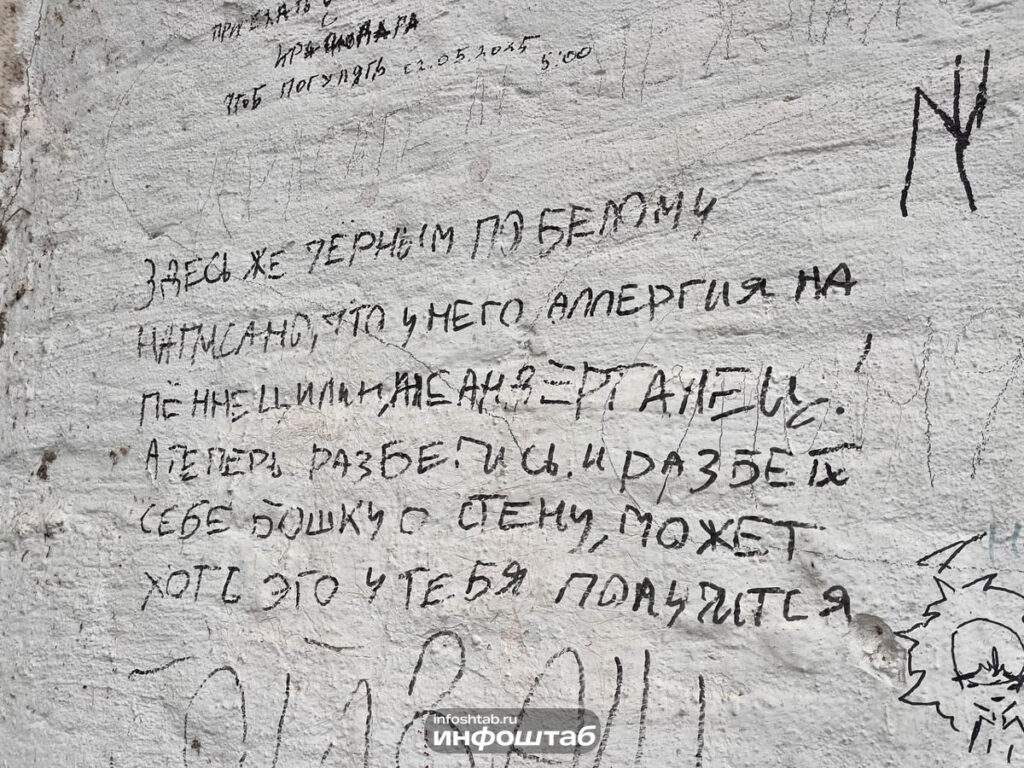 ПРИЕХАТЬ
С
КРАСНОДАРА
ЧТОБ ПОГУЛЯТЬ 02.05.2025 5:00
ЗДЕСЬ ЖЕ ЧЁРНЫМ ПО БЕЛОМУ
НАПИСАНО, ЧТО У НЕГО АЛЛЕРГИЯ НА
ПЁННЕЦИЛИН,
А ТЕПЕРЬ РАЗБЕГИСЬ. И РАЗБЕЙ
СЕБЕ БОШКУ О СТЕНУ, МОЖЕТ
ХОТЬ ЭТО У ТЕБЯ ПОЛУЧИТСЯ
infoshtab.ru
ИНФОШТАБ